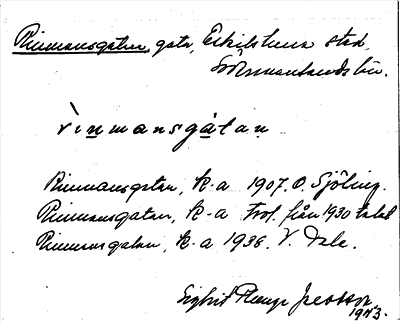 Rinmansgatan, gata, Eskilstuna stad,
Södermanlands län.
rìnmansgátan
Rinmansgatan, k-a 1907. O. Sjöling.
Rinmansgatan, k-a trol. från 1930 talet
Rinmansgatan, k-a 1936. V. Dale.
Sigfrid
1943.